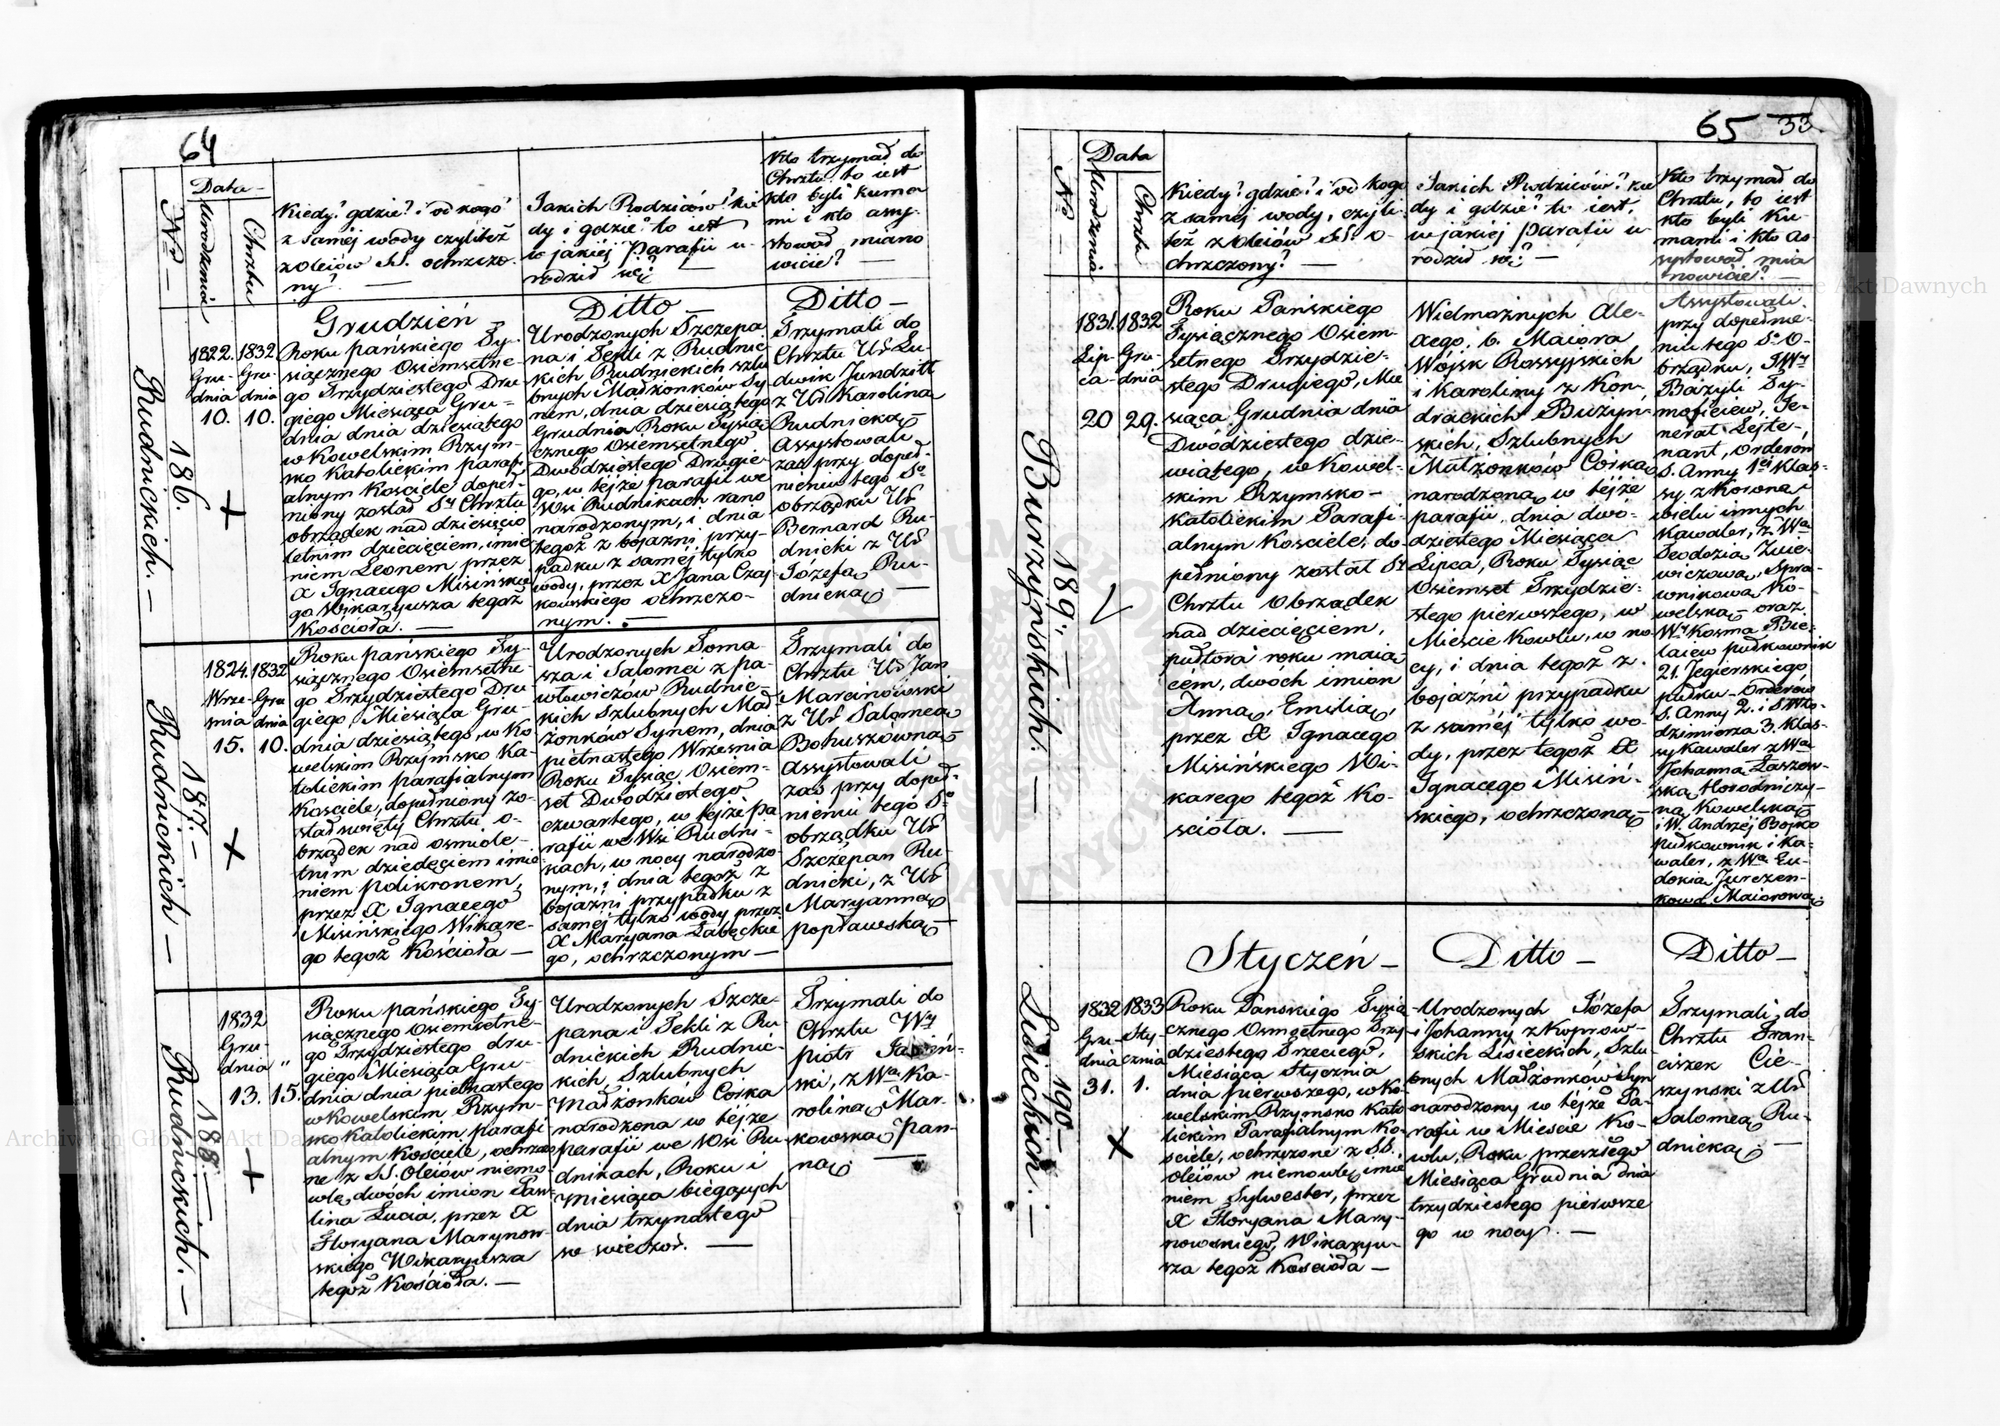 64
Nro —
Data —
Urodzenia
Chrztu
Kiedy? gdzie? i od kogo
z samej wody czyliteż
z oleiów SS. ochrzczo-
ny? —
Jakich Rodziców? kie
dy i gdzie? to iest
w jakiej Parafii u-
rodził się? —
Kto trzymał do
Chrztu to iest
kto byli kuma
mi i kto assy-
stował miano
wicie? —
Rudnickich. —
186.
1822.
Gru-
dnia
10.
1832
Gru-
dnia
10.
Grudzień —
Roku pańskiego Ty-
siącznego Osiemsetne-
go Trzydziestego Dru
giego Miesiąca Gru-
dnia dnia dziesiątego
w Kowelskim Rzym-
sko Katolickim parafi
alnym Kościele dopeł-
niony został Sy Chrztu
obrządek nad dziesięcio
letnim dziecięciem, imie
niem Leonem przez
X Ignacego Misińskie
go Wikaryusza tegoż
Kościoła. —
Ditto —
Urodzonych Szczepa
na i Tekli z Rudnic-
kich Rudnickich szlu
bnych Małżonków Sy
nem, dnia dziesiątego
Grudnia Roku Tysią
cznego Osiemsetnego
Dwódziestego Drugie-
go, w tejże parafii we
Wsi Rudnikach rano
narodzonym, i dnia
tegoż z bojaźni przy-
padku z samej tylko
wody, przez X Jana Czaj
kowskiego ochrzczo-
nym. —
Ditto —
Trzymali do
Chrztu Ur Lu-
dwik Jundziłł
z Ur Karoliną
Rudnicką —
Assystowali
zaś przy dopeł-
nieniu tego So
obrządku Ur
Bernard Ru-
dnicki z Ur
Józefą Ru-
dnicką —
Rudnickich —
187. —
1824.
Wrze-
śnia
15.
1832
Gru
dnia
10.
Roku pańskiego Ty-
siącznego Osiemsetne
go Trzydziestego Dru
giego Miesiąca Gru-
dnia dziesiątego, w Ko
welskim Rzymsko Ka-
tolickim parafialnym
Kościele, dopełniony zo-
stał święty Chrztu o-
brządek nad osmiole-
tnim dziecięciem imio
niem polikronem,
przez X Ignacego
Misińskiego Wikare-
go tegoż Kościoła —
Urodzonych Toma
sza i Salomei z pa-
włowiczów Rudnic-
kich Szlubnych Mał
żonków Synem, dnia
pietnastego Września
Roku Tysiąc Osiem-
set Dwódziestego
czwartego, w tejże pa
rafii we Wsi Rudni-
kach, w nocy narodzo
nym, i dnia tegoż z
bojaźni przypadku z
samej tylko wody przez
X Maryana Łabęckie
go, ochrzczonym —
Trzymali do
Chrztu Ur Jan
Marcinowski
z Ur Salomeą
Bohuszówną —
Assystowali
zaś przy dopeł-
nieniu tego So
obrządku Ur
Szczépan Ru-
dnicki, z Ur
Maryanną
popławską —
Rudnickich. —
188. —
1832
Gru-
dnia "
13.
15.
Roku pańskiego Ty-
siącznego Osiemsetne-
go Trzydziestego dru-
giego Miesiąca Gru-
dnia dnia pietnastego
w Kowelskim Rzym-
sko Katolickim parafi-
alnym Kościele, ochrzczo
ne z SS. Oleiów niemo-
wlę, dwóch imion Paw-
lina Łucia, przez X
Floryana Marynow-
skiego Wikaryusza
tegoż Kościoła. —
Urodzonych Szcze-
pana i Tekli z Ru
dnickich Rudnic-
kich, Szlubnych
Małżonków Córka
narodzona w tejże
parafii we Wsi Ru
dnikach, Roku i
Miesiąca bieżących
dnia trzynastego
w wieczór. —
Trzymali do
Chrztu Wy
piotr
ski, z Wą Ka-
roliną Mar-
kowską Pan-
ną —
65
33.
Nro —
Data
Urodzenia
Chrztu
Kiedy? gdzie? i od kogo
z samej wody, czyli
też z oleiów SS. o-
chrzczony? —
Jakich Rodziców? kie
dy i gdzie? to iest,
w jakiej Parafii u-
rodził się? —
Kto trzymał do
Chrztu, to iest
kto byli Ku-
mami i kto as-
systował mia
nowicie? —
Burzyńskich. —
189. —
1831.
Lip-
ca-
20
1832
Gru-
dnia
29.
Roku Pańskiego
Tysiącznego Osiem-
setnego Trzydzie-
stego Drugiego, Mie
siąca Grudnia dnia
Dwódziestego dzie-
wiątego, w Kowel-
skim Rzymsko-
Katolickim Parafi-
alnym Kościele, do-
pełniony został Sy
Chrztu Obrządek
nad dziecięciem,
półtora roku maią-
cém, dwóch imion
Anna, Emilia,
przez X Ignacego
Misińskiego Wi-
karego tegoż Ko-
ścioła. —
Wielmożnych Ale-
xego, b. Maiora
Wójsk Rossyjskich
i Karoliny z Kon-
drackich Burzyń-
skich, Szlubnych
Małżonków Córka
narodzona w tejże
parafii, dnia dwó-
dziestego Miesiąca
Lipca, Roku Tysiąc
Osiemset Trzydzie-
stego pierwszego, w
Mieście Kowlu, w no
cy, i dnia tegoż z
bojaźni przypadku
z samej tylko wo-
dy, przez tegoż X
Ignacego Misiń-
skiego, ochrzczona —
Assystowali
przy dopełnie-
niu tego So O-
brządku, JWy
Bazyli Ty-
mofieiew, Je-
nerał Lejte-
nant, Orderów
S. Anny 1éi Klas-
sy z Koroną i
wielu innych
Kawaler, z Wą
Teodozią Żuie-
wiczową, Spra-
wnikową Ko-
welską — oraz
Wy Kosma Bie-
laiew pułkownik
21. Jegierskiego
pułku — Orderów
S. Anny 2. i S Wło-
dzimierza 3. klas-
sy kawaler z Wą
Johanną Łaszow-
ską Horodniczy-
ną Kowelską —
i W. Andrzéj Bojko
pułkownik i Ka-
waler, z Wą Eu-
dokią Jurczen-
kową Maiorową
Lisieckich. —
190 —
1832
Gru-
dnia
31.
1833
Sty-
cznia
1.
Styczeń —
Roku Pańskiego Tysią
cznego Osmsetnego Trzy
dziestego Trzeciego,
Miesiąca Stycznia
dnia pierwszego, w Ko-
welskim Rzymsko Kato
lickim Parafialnym Ko-
ściele, ochrzczone z SS.
Oleiów niemowlę, imie
niem Sylwester, przez
X Floryana Mary-
nowskiego, Wikaryu-
sza tegoż Kościoła —
Ditto —
Urodzonych Józefa
i Johanny z Koprow-
skich Lisieckich, Szlu-
bnych Małżonków Syn
narodzony w tejże Pa-
rafii w Mieście Ko-
wlu, Roku przeszłego
Miesiąca Grudnia dnia
trzydziestego pierwsze
go w nocy. —
Ditto —
Trzymali do
Chrztu Fran-
ciszek Cie-
szynski z Ur
Salomeą Ru-
dnicką —
Archiwum Główne Akt Dawnych
Archiwum Główne Akt Dawnych